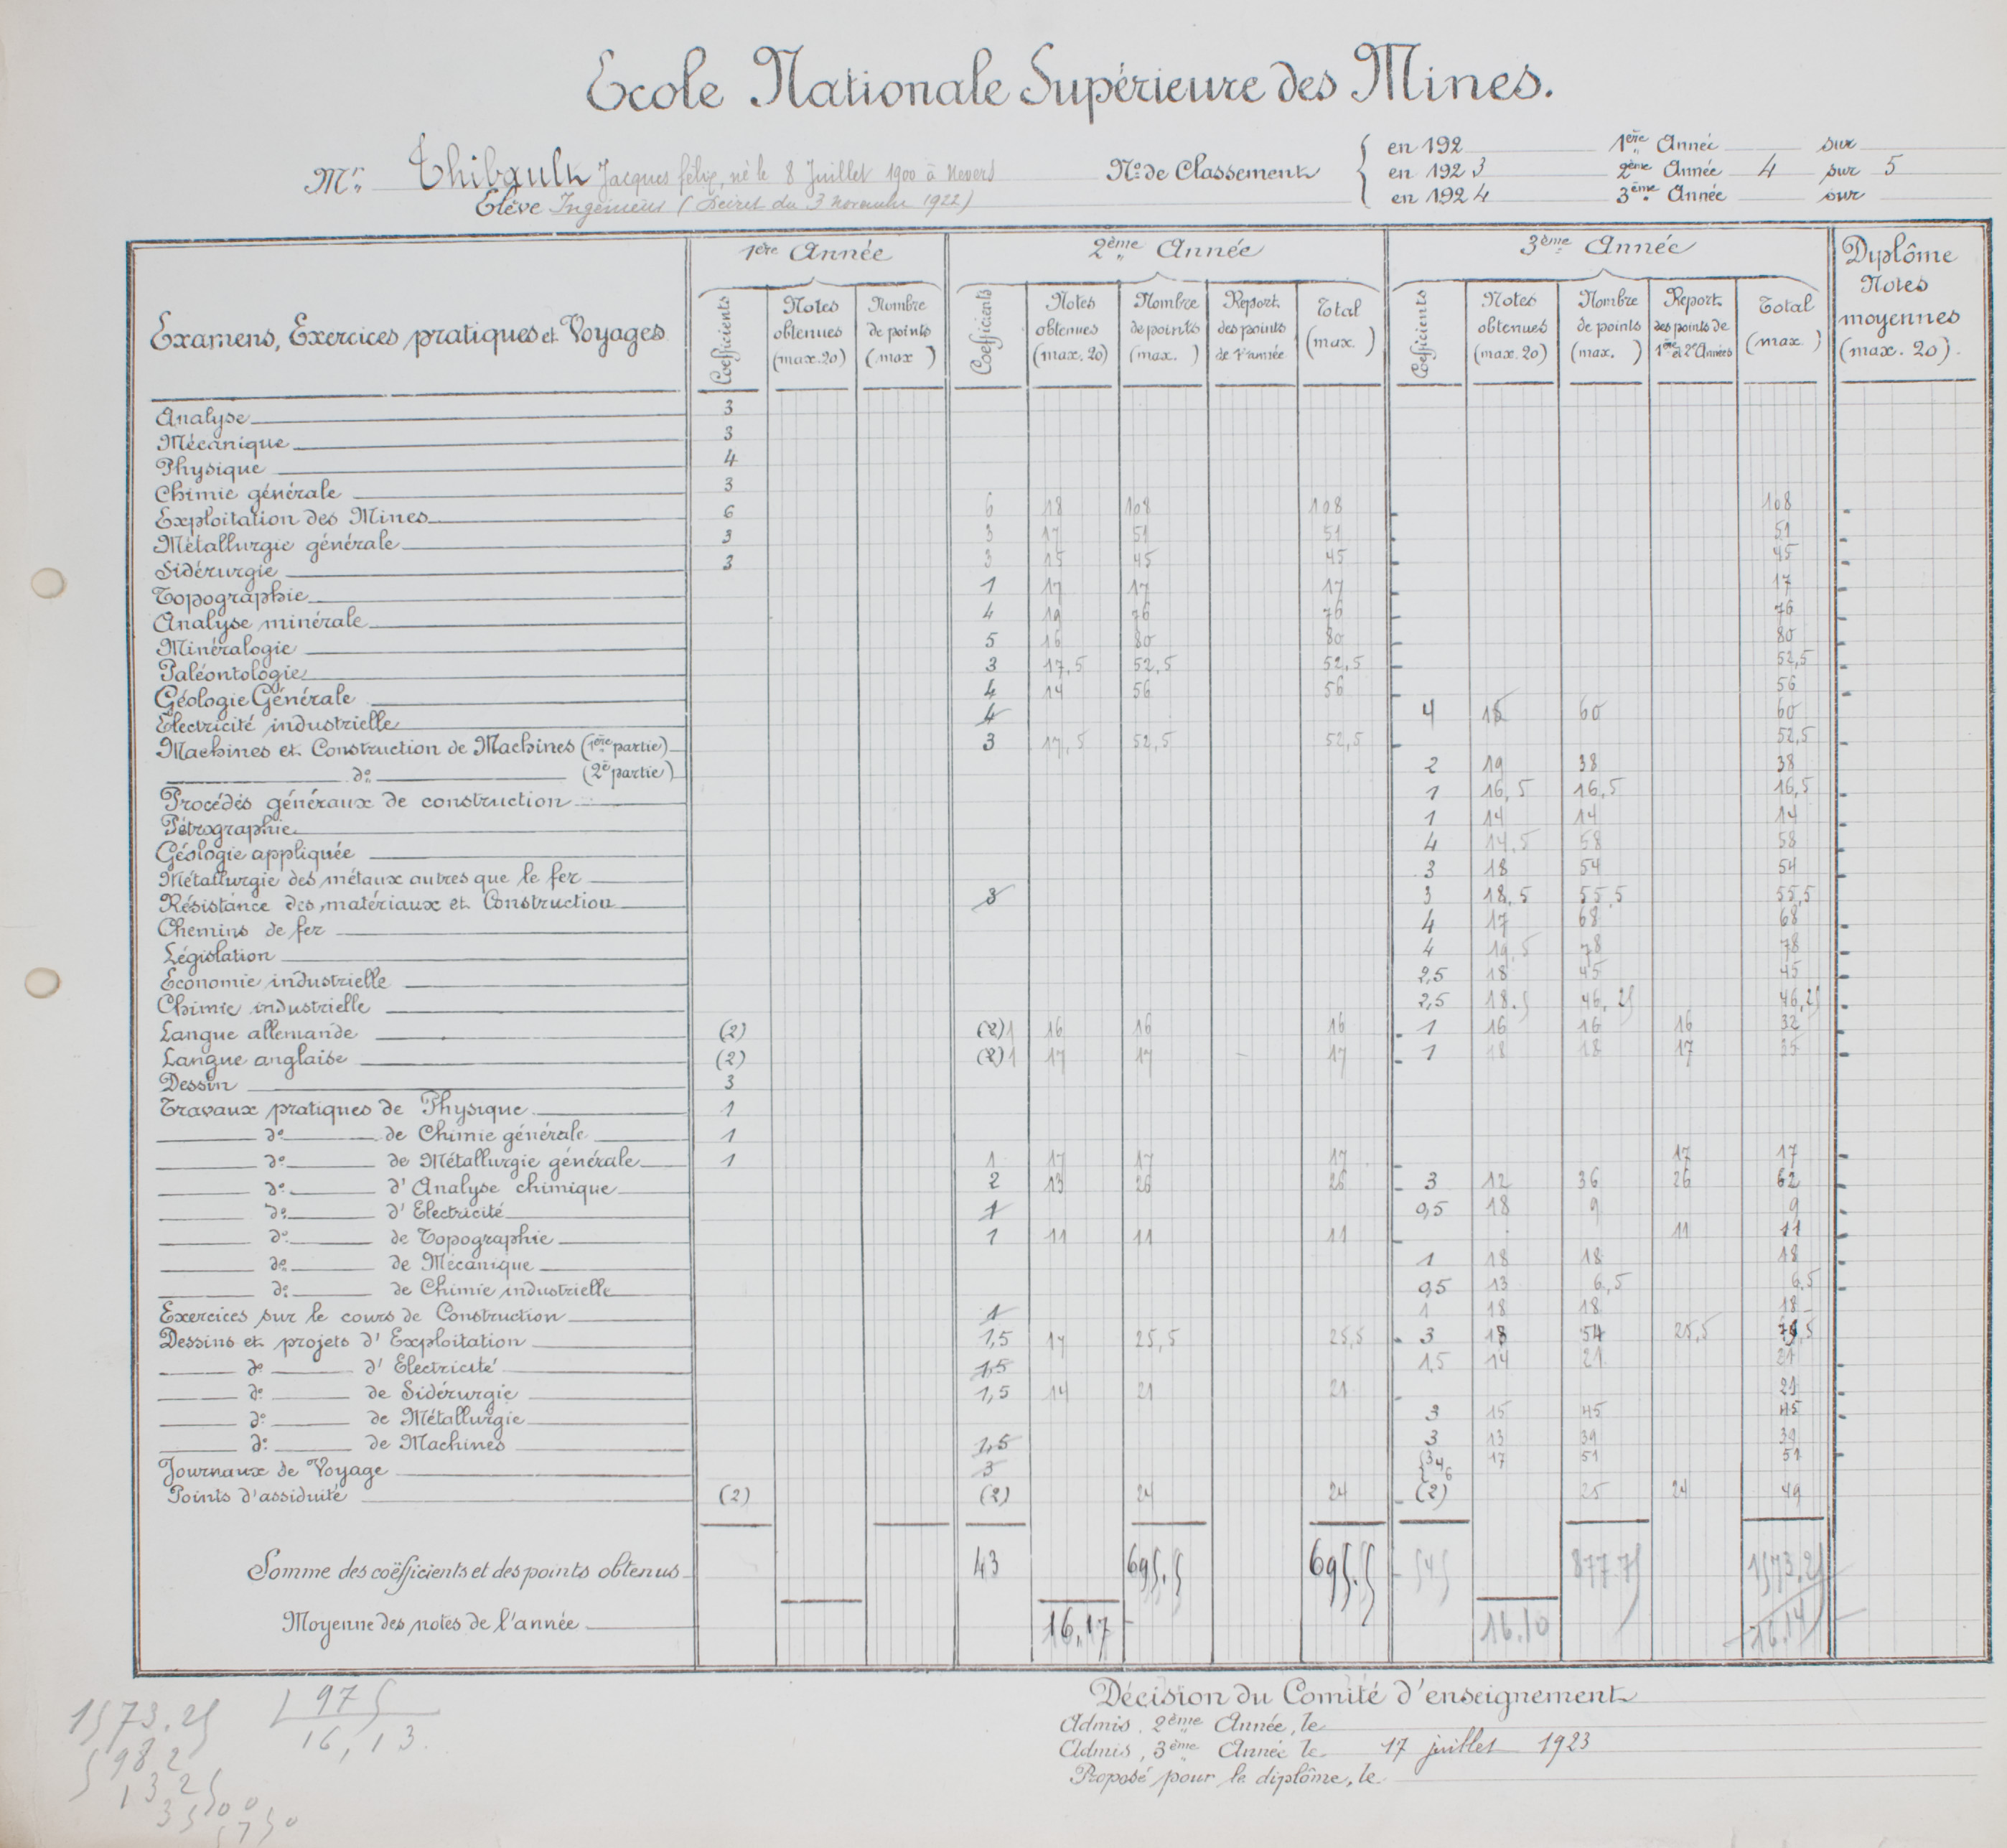 Ecole Nationale Supérieure des Mines.
Mr. Thibault Jacques félix, né le 8 Juillet 1900 à Nevers
Elève Ingénieur (Décret du 3 novembre 1922)
No. de Classement
en 192 1ère Année sur
en 1923 2ème Année 4 sur 5
en 1924 3ème Année sur
Examens, Exercices pratiques et Voyages
1ère Année
Coefficients
Notes obtenues (max. 20)
Nombre de points (max )
2ème Année
Coefficients
Notes obtenues (max. 20)
Nombre de points (max. )
Report des points de 1re année
Total (max. )
3ème Année
Coefficients
Notes obtenues (max. 20)
Nombre de points (max. )
Report des points de 1ère et 2e Années
Total (max. )
Diplôme Notes moyennes (max. 20).
Analyse 3
Mécanique 3
Physique 4
Chimie générale 3
Exploitation des Mines 6 6 18 108 108 108
Métallurgie générale 3 3 17 51 51 51
Sidérurgie 3 3 15 45 45 45
Topographie 1 17 17 17 17
Analyse minérale 4 19 76 76 76
Minéralogie 5 16 80 80 80
Paléontologie 3 17,5 52,5 52,5 52,5
Géologie Générale 4 14 56 56 56
Electricité industrielle 4 4 15 60 60
Machines et Construction de Machines (1ère partie) 3 17,5 52,5 52,5 52,5
do (2e partie) 2 19 38 38
Procédés généraux de construction 1 16,5 16,5 16,5
Pétrographie 1 14 14 14
Géologie appliquée 4 14,5 58 58
Métallurgie des métaux autres que le fer 3 18 54 54
Résistance des matériaux et Construction 3 3 18,5 55,5 55,5
Chemins de fer 4 17 68 68
Législation 4 19,5 78 78
Economie industrielle 2,5 18 45 45
Chimie industrielle 2,5 18.5 46,25 46,25
Langue allemande (2) (2) 1 16 16 16 1 16 16 16 32
Langue anglaise (2) (2) 1 17 17 – 17 1 18 18 17 35
Dessin 3
Travaux pratiques de Physique 1
do de Chimie générale 1
do de Métallurgie générale 1 1 17 17 17 17 17
do d'Analyse chimique 2 13 26 26 3 12 36 26 62
do d'Electricité 1 0,5 18 9 9
do de Topographie 1 11 11 11 11 11
do de Mécanique 1 18 18 18
do de Chimie industrielle 0,5 13 6,5 6,5
Exercices sur le cours de Construction 1 1 18 18 18
Dessins et projets d'Exploitation 1,5 17 25,5 25,5 3 18 54 25,5 79,5
do d'Electricité 1,5 1,5 14 21 21
do de Sidérurgie 1,5 14 21 21 21
do de Métallurgie 3 15 45 45
do de Machines 1,5 3 13 39 39
Journaux de Voyage 3 3 17 51 51
Points d'assiduité (2) (2) 24 24 (2) 25 24 49
Somme des coëfficients et des points obtenus 43 695.5 695.5 545 877.75 1573,25
Moyenne des notes de l'année 16,17 16.10 16.14
1573.25 975
16,13.
982
1325
3500
5750
Décision du Comité d'enseignement
Admis, 2ème Année, le
Admis, 3ème Année le 17 juillet 1923
Proposé pour le diplôme, le